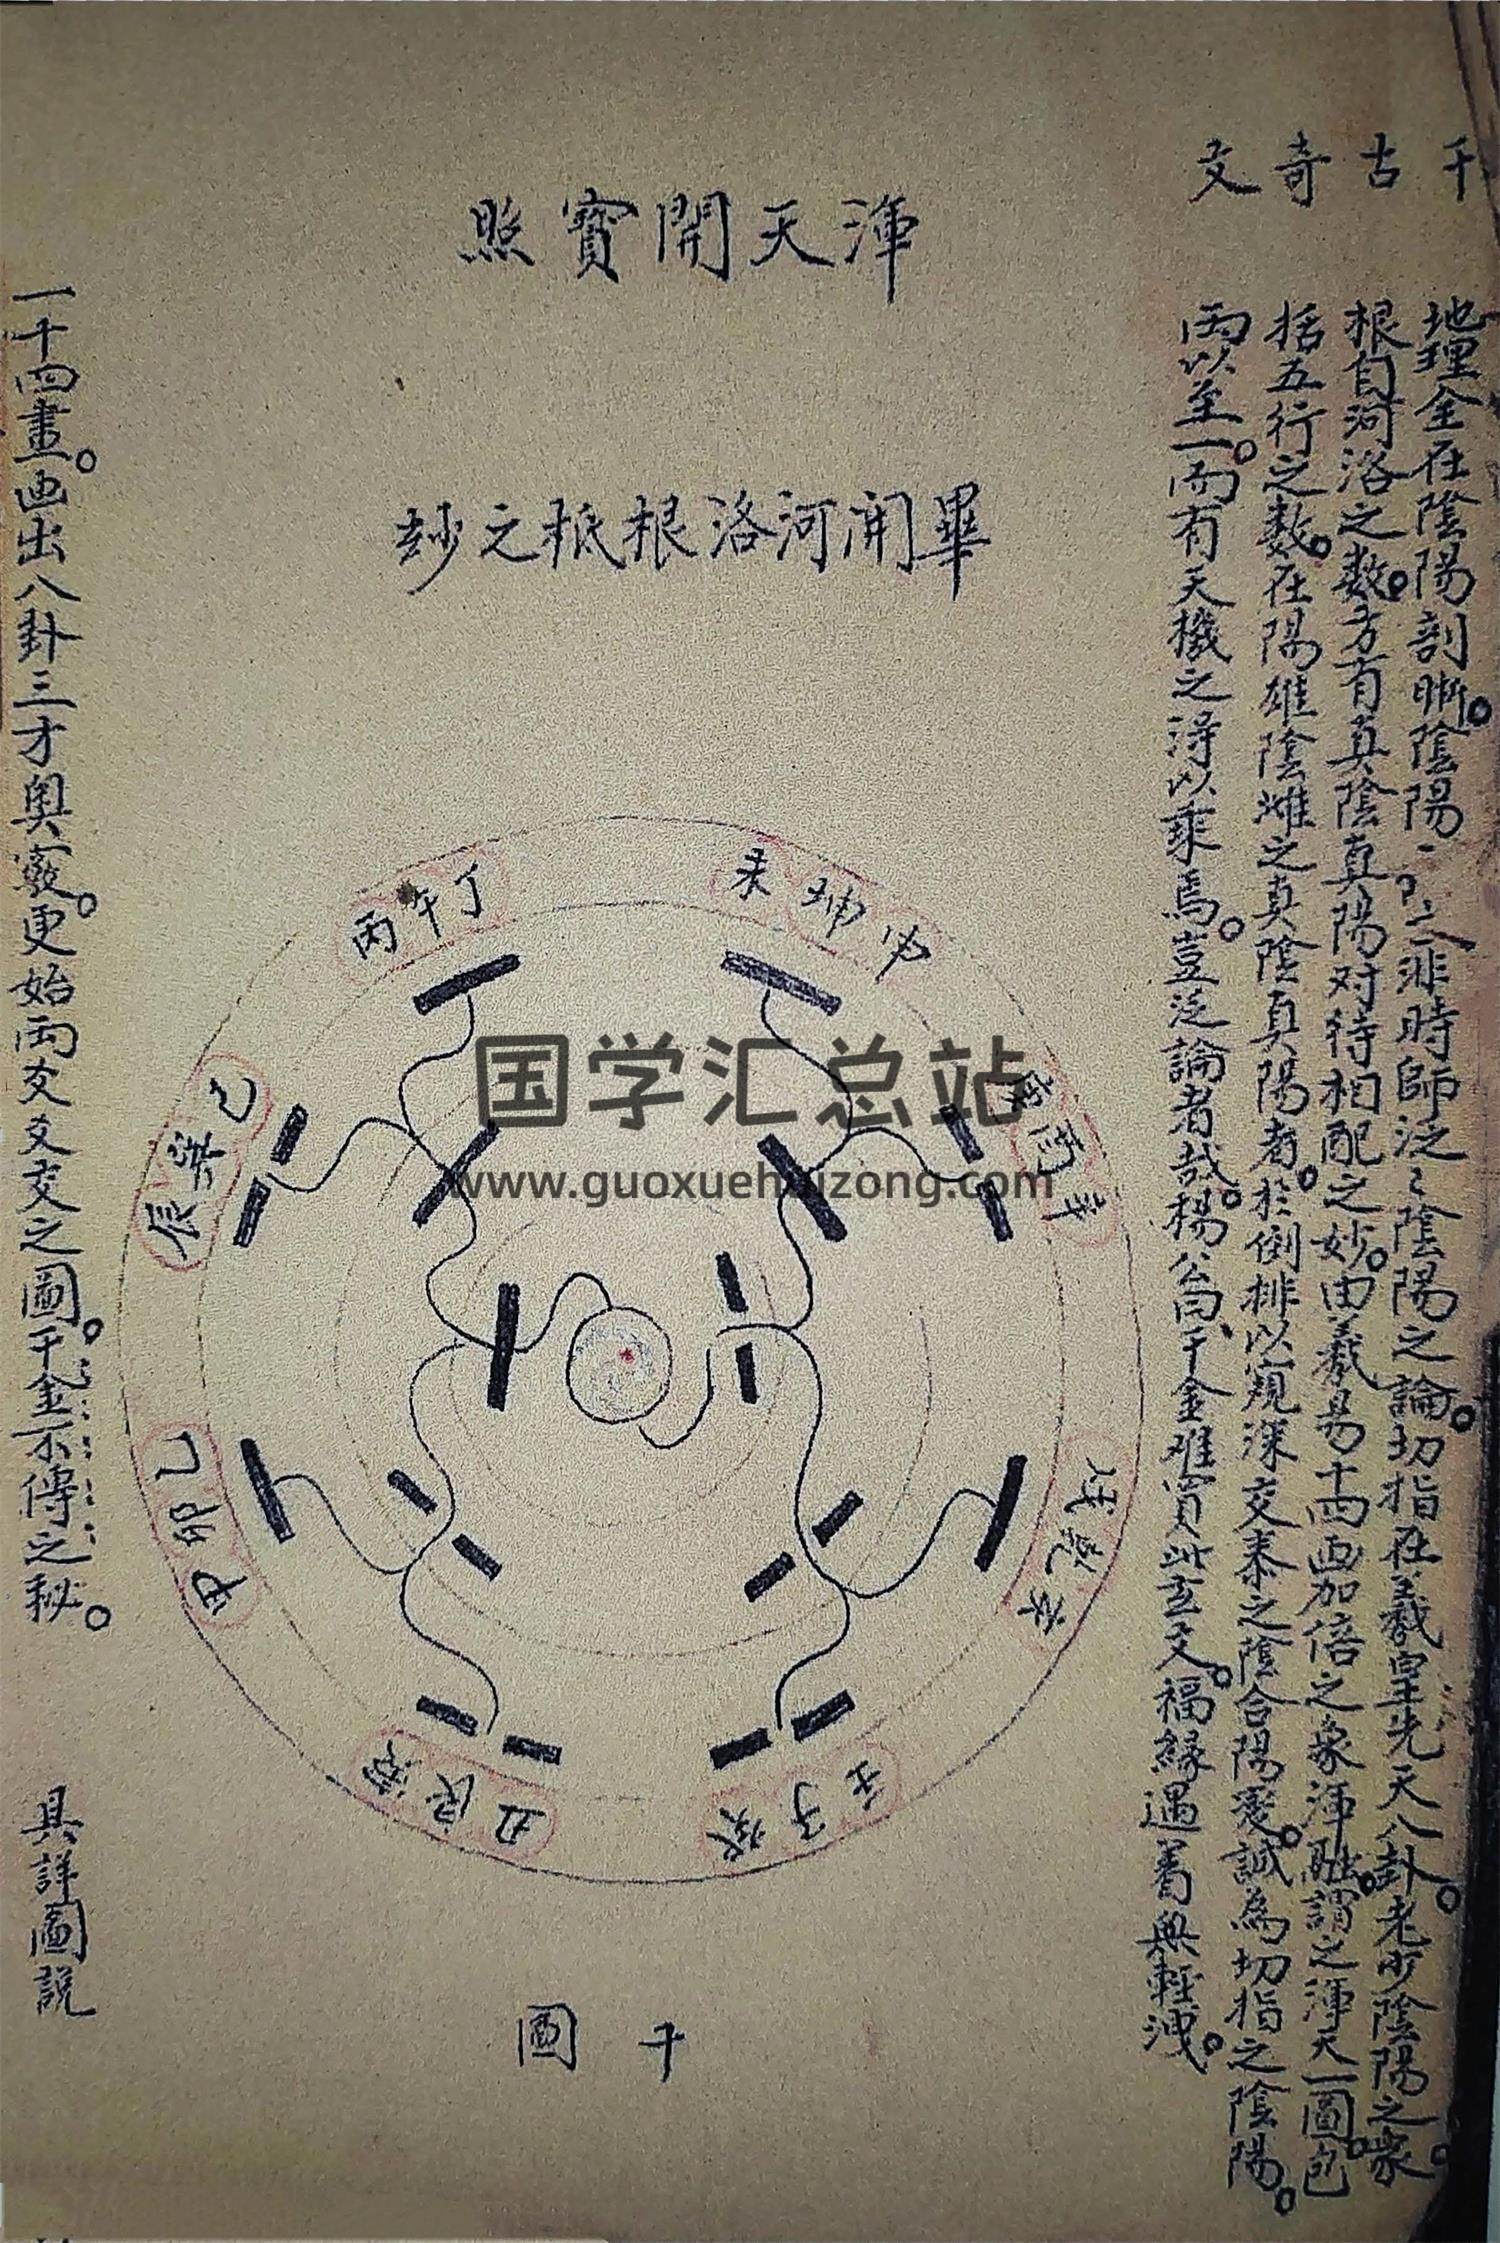 千古奇文
地理全在陰陽剖晰。陰陽〻〻之非時師泛〻陰陽之論。切指在羲皇先天八卦。老少陰陽之象。
根自河洛之数。方有真陰真陽对待相配之妙。由羲易十四画加倍之象渾融。謂之渾天一圖。包
括五行之数。在陽雄陰雌之真陰真陽者。於倒排以窺深交泰之陰合陽爱。誠為切指之陰陽。
両以至一。両有天機之淂以乘焉。豈泛論者哉。楊公曰、千金难買此玄文。福緣遇着無輕洩。
渾天開寶照
畢開河洛根柢之玅
丙午丁
未坤申
庚酉辛
戌乾亥
壬子癸
丑艮寅
甲卯乙
辰巽巳
千圖
一十四畫。画出八卦三才奥竅。更始両爻爻交之圖。千金不傳之秘。 具詳圖説
国学汇总站
www.guoxuehuizong.com